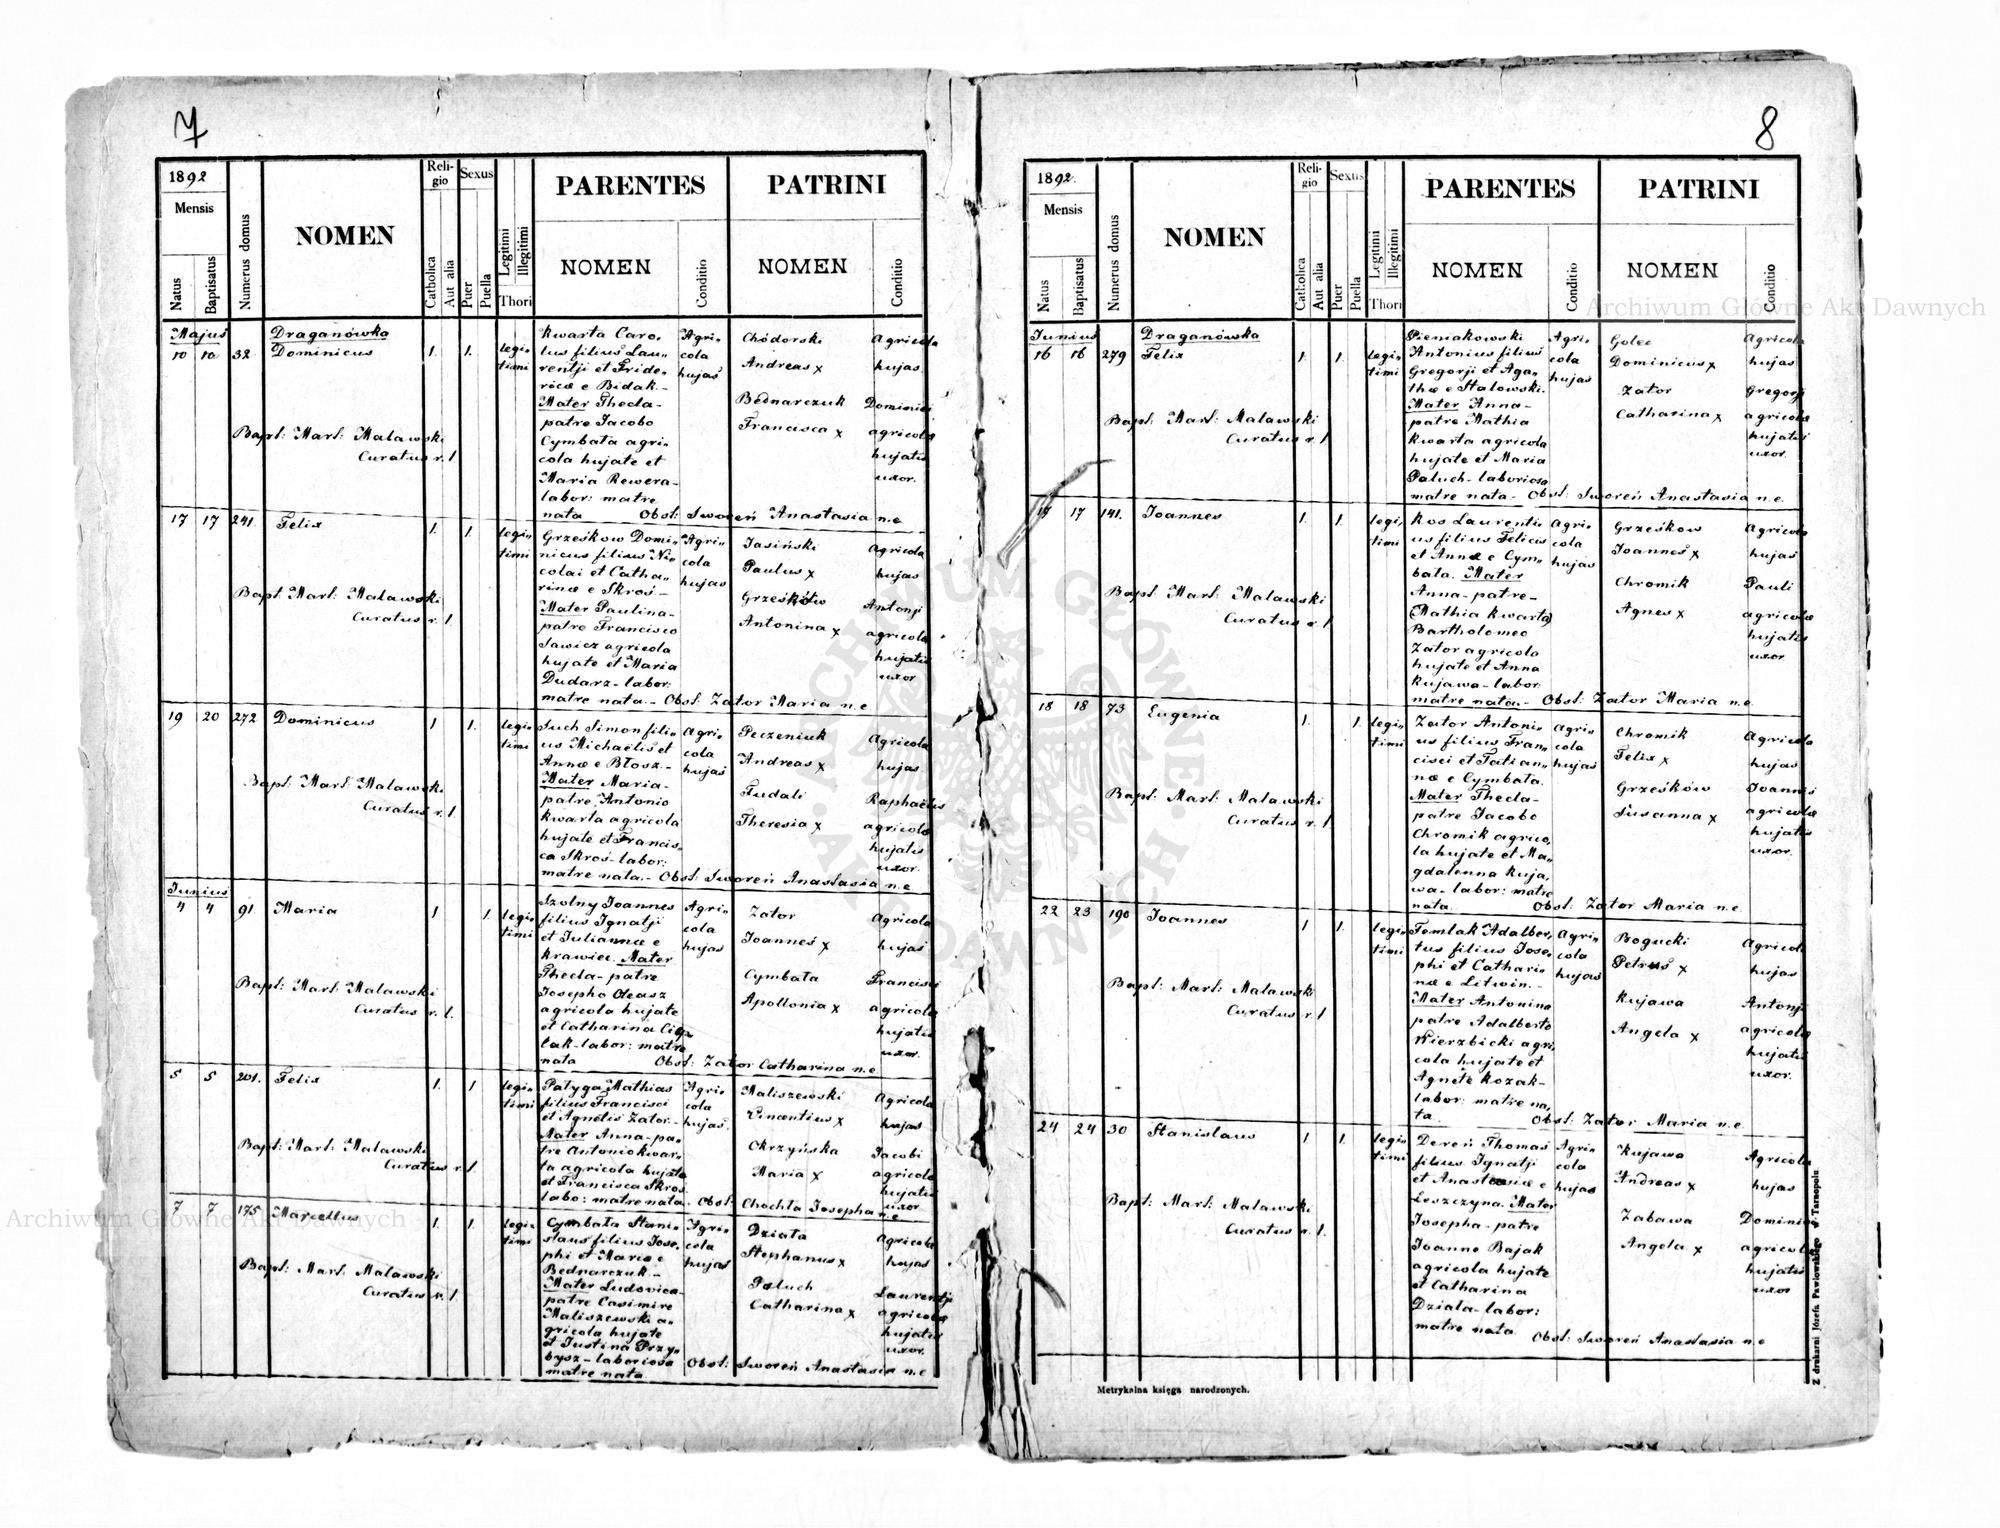 7
1892
Mensis
Natus
Baptisatus
Numerus domus
NOMEN
Religio
Catholica
Aut alia
Sexus
Puer
Puella
Legitimi
Illegitimi
Thori
PARENTES
NOMEN
Conditio
PATRINI
NOMEN
Conditio
Majus
Draganówka
10 10 32. Dominicus 1. 1. legi-
timi
Kwarta Caro-
lus filius Lau-
rentji et Fride-
ricæ e Bidak.-
Mater Thecla-
patre Jacobo
Cymbata agri-
cola hujate et
Maria Rewera-
labor: matre
nata Obst: Sworeń Anastasia n.e
Agri-
cola
hujas
Chódorski
Andreas x
Bednarczuk
Francisca x
Agricola
hujas.
Dominici
agricolæ
hujatis
uxor.
Bapt: Mart: Malawski
Curatus r. l.
17 17 241. Felix 1. 1. legi-
timi
Grześkow Domi-
nicus filius Ni-
colai et Catha-
rinæ e Skroś-
Mater Paulina-
patre Francisco
Sawicz agricola
hujate et Maria
Dudarz-labor:
matre nata.- Obst: Zator Maria n.e
Agri-
cola
hujas
Jasiński
Paulus x
Grześków
Antonina x
Agricola
hujas
Antonji
agricolæ
hujatis
uxor
Bapt. Mart: Malawski
Curatus r. l.
19 20 272 Dominicus 1 1. legi-
timi
Such Simon fili-
us Michaëlis et
Annæ e Błosz.-
Mater Maria-
patre Antonio
Kwarta agricola
hujate et Francis-
ca Skroś-labor:
matre nata.- Obst: Sworeń Anastasia n.e
Agri-
cola
hujas
Peczeniuk
Andreas x
Fudali
Theresia x
Agricola
hujas
Raphaëlis
agricolæ
hujatis
uxor.
Bapt: Mart: Malawski
Curatus r. l.
Junius
4 4 91. Maria 1 1. legi-
timi
Szolny Joannes
filius Ignatji
et Juliannæ e
Krawiec. Mater
Thecla-patre
Josepho Oleasz
agricola hujate
et Catharina
lak-labor: matre
nata Obst: Zator Catharina n.e
Agri-
cola
hujas
Zator
Joannes x
Cymbata
Apollonia x
Agricola
hujas
Francisci
agricolæ
hujatis
uxor.
Bapt: Mart: Malawski
Curatus r. l.
5 5 201. Felix 1. 1 legi-
timi
Patyga Mathias
filius Francisci
et Agnetis Zator.-
Mater Anna-pa-
tre Antonio Kwar-
ta agricola hujate
et Francisca Skroś
labo: matre nata. Obst: Chochla Josepha n.e
Agri-
cola
hujas.
Maliszewski
Vincentius x
Okrzyńska
Maria x
Agricola
hujas
Jacobi
agricolæ
hujatis
uxor
Bapt: Mart: Malawski
Curatus r. l.
7 7 175 Marcellus 1. 1. legi-
timi
Cymbata Stani-
slaus filius Jose-
phi et Mariæ e
Bednarczuk-
Mater Ludovica-
patre Casimiro
Maliszewski a-
gricola hujate
et Justina Przy-
bysz-laboriosa Obst: Sworeń Anastasia n.e
matre nata.
Agri-
cola
hujas
Działa
Stephanus x
Paluch
Catharina x
Agricola
hujas
Laurentji
agricolæ
hujatis
uxor.
Bapt: Mart: Malawski
Curatus r. l.
8
1892.
Mensis
Natus
Baptisatus
Numerus domus
NOMEN
Religio
Catholica
Aut alia
Sexus
Puer
Puella
Legitimi
Illegitimi
Thori
PARENTES
NOMEN
Conditio
PATRINI
NOMEN
Conditio
Junius
Draganówka
16 16 279 Felix 1. 1. legi-
timi
Pieniakowski
Antonius filius
Gregorji et Aga-
thæ e Stalowski.
Mater Anna-
patre Mathia
Kwarta agricola
hujate et Maria
Paluch-laboriosa
matre nata- Obst: Sworeń Anastasia n.e.
Agri-
cola
hujas
Golec
Dominicus x
Zator
Catharina x
Agricola
hujas
Gregorji
agricolæ
hujatis
uxor.
Bapt: Mart: Malawski
Curatus r. l.
17 17 141. Joannes 1. 1. legi-
timi
Kos Laurenti-
us filius Felicis
et Annæ e Cym-
bata. Mater
Anna-patre-
(Mathia Kwarta)
Bartholomeo
Zator agricola
hujate et Anna
Kujawa-labor:
matre nata.- Obst: Zator Maria n.e
Agri-
cola
hujas
Grześkow
Joannes x
Chromik
Agnes x
Agricola
hujas
Pauli
agricolæ
hujatis
uxor
Bapt: Mart: Malawski
Curatus r. l.
18 18 73 Eugenia 1. 1. legi-
timi
Zator Antoni-
us filius Fran-
cisci et Tatian-
næ e Cymbata.
Mater Thecla-
patre Jacobo
Chromik agrico-
la hujate et Ma-
gdalenna Kuja-
wa-labor: matre
nata. Obst: Zator Maria n.e.
Agri-
cola
hujas
Chromik
Felix x
Grześków
Susanna x
Agricola
hujas
Joannes
agricolæ
hujatis
uxor.
Bapt: Mart: Malawski
Curatus r. l.
22 23 190 Joannes 1 1. legi-
timi
Tomlak Adalber-
tus filius Jose-
phi et Cathari-
næ e Litwin.-
Mater Antonina
patre Adalberto
Wierzbicki agri-
cola hujate et
Agnete Kozak-
labor: matre na-
ta. Obst: Zator Maria n.e.
Agri-
cola
hujas
Bogucki
Petrus x
Kujawa
Angela x
Agricola
hujas
Antonji
agricolæ
hujatis
uxor.
Bapt: Mart: Malawski
Curatus r. l
24 24 30 Stanislaus 1. 1. legi-
timi
Dereń Thomas
filius Ignatji
et Anastasiæ e
Leszczyna. Mater
Josepha-patre
Joanne Bajak
agricola hujate
et Catharina
Działa-labor:
matre nata Obst: Sworeń Anastasia n.e
Agri-
cola
hujas
Kujawa
Andreas x
Zabawa
Angela x
Agricola
hujas
Dominici
agricolæ
hujatis
uxor
Bapt: Mart: Malawski
Curatus r. l.
Metrykalna księga narodzonych.
Z drukarni Józefa Pawłowskiego w Tarnopolu
Archiwum Główne Akt Dawnych
Archiwum Główne Akt Dawnych
ARCHIWUM GŁÓWNE AKT DAWNYCH